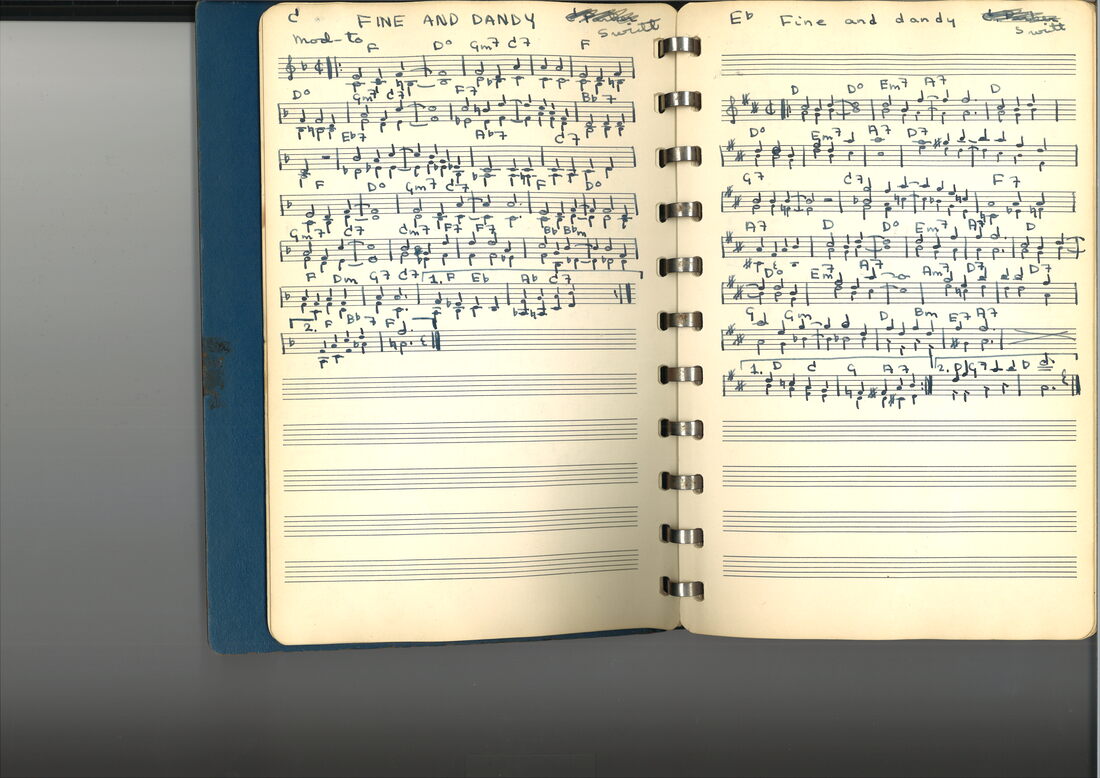 C FINE AND DANDY
Swritt
mod-to
F D° Gm7 C7 F
D° Gm7 C7 F7 Bb7
Eb7 Ab7 C7
F D° Gm7 C7 F D°
Gm7 C7 Cm7 F7 F7 Bb Bbm
F Dm G7 C7 1. F Eb Ab C7
2. F Bb7 F
Eb Fine and dandy
Switt
D D° Em7 A7 D
D° Em7 A7 D7
G7 C7 F7
A7 D D° Em7 A7 D
D° Em7 A7 Am7 D7 D7
G Gm D Bm E7 A7
1. D C G A7 2. D G7 D